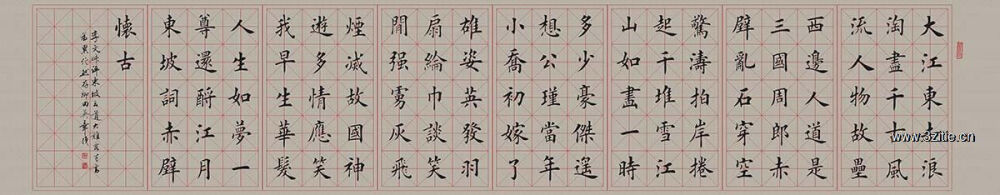 大江東去浪
淘盡千古風
流人物故壘
西邊人道是
三國周郎赤
壁亂石穿空
驚濤拍岸捲
起千堆雪江
山如畫一時
多少豪傑遥
想公瑾當年
小喬初嫁了
雄姿英發羽
扇綸巾談笑
間强虜灰飛
煙滅故國神
遊多情應笑
我早生華髮
人生如夢一
尊還酹江月
東坡詞赤壁
懷古